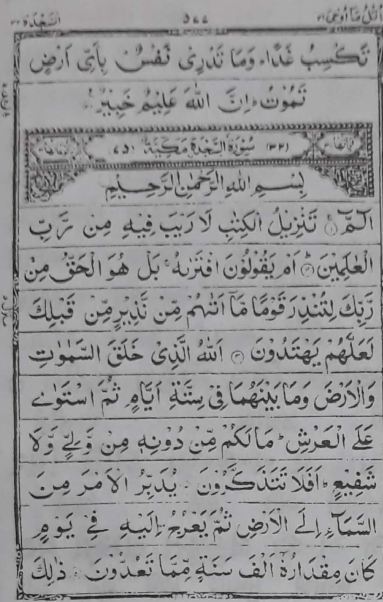 اتل ما اوحی ۲۱ ۵۷۷ السجدة ۳۲
تَكْسِبُ غَدًا ؕ وَمَا تَدْرِىْ نَفْسٌۢ بِاَىِّ اَرْضٍ
تَمُوْتُ ؕ اِنَّ اللّٰهَ عَلِيْمٌ خَبِيْرٌ
(۳۲) سُوْرَةُ السَّجْدَةِ مَكِّيَّةٌ (۷۵)
بِسْمِ اللّٰهِ الرَّحْمٰنِ الرَّحِيْمِ
الٓمّٓ ۚ تَنْزِيْلُ الْكِتٰبِ لَا رَيْبَ فِيْهِ مِنْ رَّبِّ
الْعٰلَمِيْنَ ؕ اَمْ يَقُوْلُوْنَ افْتَرٰىهُ ۚ بَلْ هُوَ الْحَقُّ مِنْ
رَّبِّكَ لِتُنْذِرَ قَوْمًا مَّاۤ اَتٰىهُمْ مِّنْ نَّذِيْرٍ مِّنْ قَبْلِكَ
لَعَلَّهُمْ يَهْتَدُوْنَ ۳ اَللّٰهُ الَّذِىْ خَلَقَ السَّمٰوٰتِ
وَالْاَرْضَ وَمَا بَيْنَهُمَا فِىْ سِتَّةِ اَيَّامٍ ثُمَّ اسْتَوٰى
عَلَى الْعَرْشِ ؕ مَا لَكُمْ مِّنْ دُوْنِهٖ مِنْ وَّلِىٍّ وَّلَا
شَفِيْعٍ ؕ اَفَلَا تَتَذَكَّرُوْنَ يُدَبِّرُ الْاَمْرَ مِنَ
السَّمَآءِ اِلَى الْاَرْضِ ثُمَّ يَعْرُجُ اِلَيْهِ فِىْ يَوْمٍ
كَانَ مِقْدَارُهٗۤ اَلْفَ سَنَةٍ مِّمَّا تَعُدُّوْنَ ذٰلِكَ